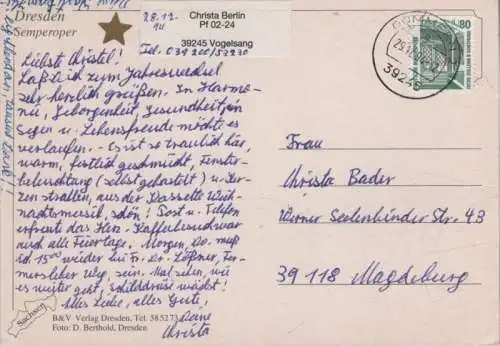 Dresden
Semperoper
28.12.
94
Tel. 039200/52230
Christa Berlin
Pf 02-24
39245 Vogelsang
80
39245
Liebste Christel!
Laß Dich zum Jahreswechsel
sehr herzlich grüßen. In Harmo-
nie, Geborgenheit, Gesundheit, im
Segen u. Lebensfreude möchte es
verlaufen. - Es ist so traulich hier,
warm, festlich geschmückt, Fenster-
beleuchtung (selbst gebastelt) u. Ker-
zen strahlen, aus der Kassette Weih-
nachtsmusik, schön! Post u. Telefon
erfreut das Herz. Kaffeebesuch war
auch alle Feiertage. Morgen, Do. muß
ich 15.00 wieder bei Fr. Dr. Lößner, Fer-
mersleber Weg, sein. Mal sehen, wie
es weiter geht, Schilddrüse wächst!
Alles Liebe, alles Gute,
Deine
Christa
Frau
Christa Bader
Werner Seelenbinder Str. 43
39 118 Magdeburg
Sachsen
B&V Verlag Dresden, Tel: 585273
Foto: D. Berthold, Dresden